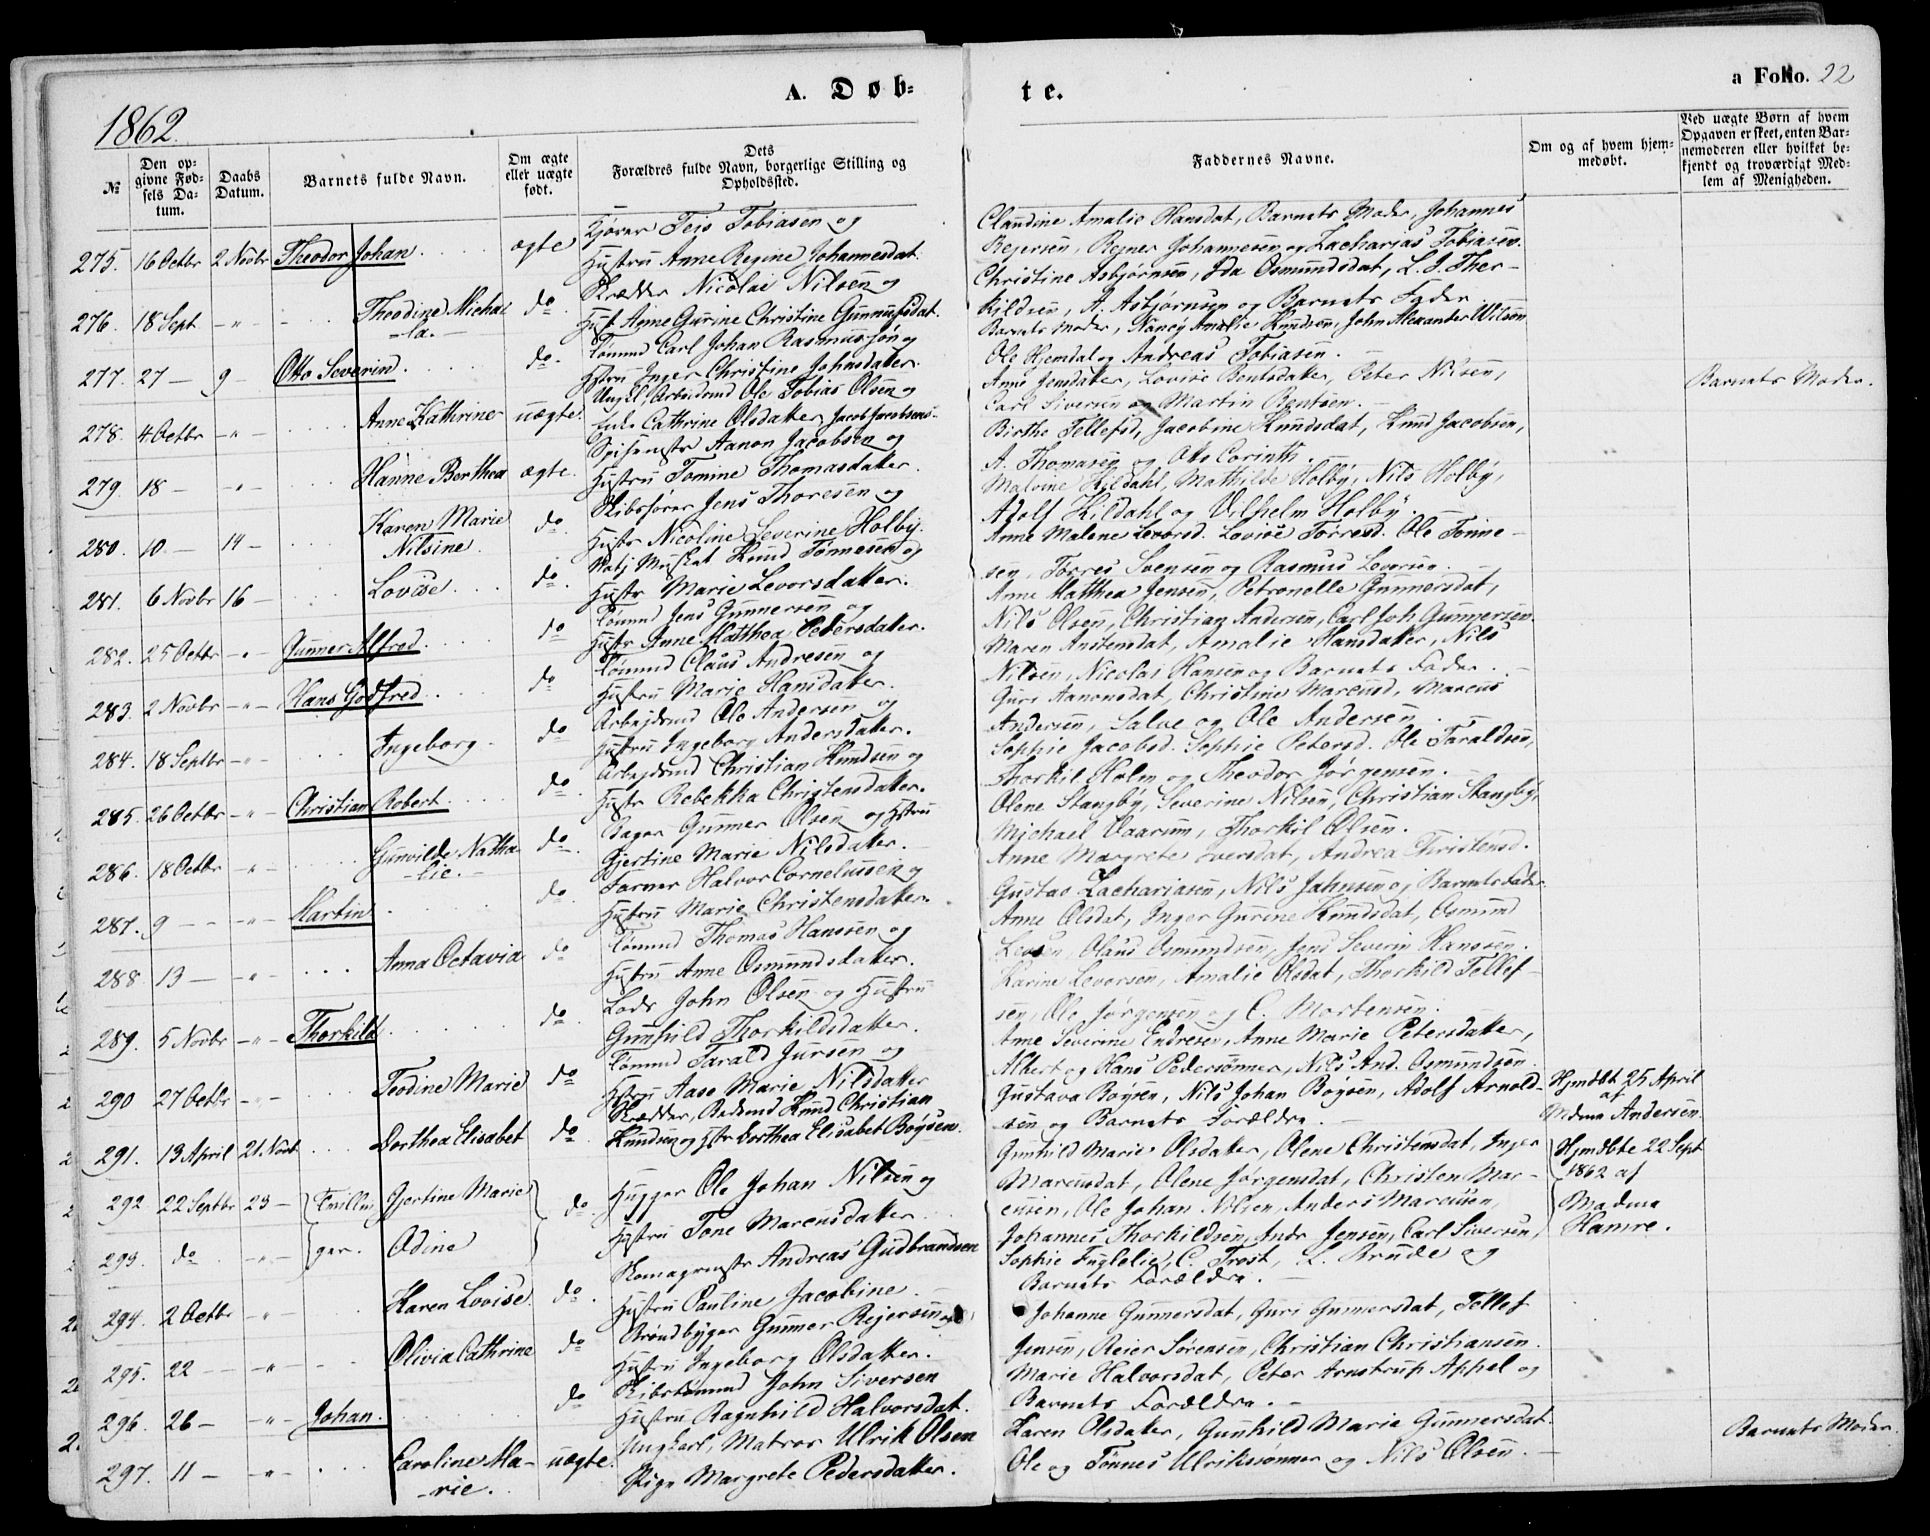 1862.
A. Døb-
te.
a Folio. 22
№
Den opgivne Fødsels Datum.
Daabs Datum.
Barnets fulde Navn.
Om ægte eller uægte født.
Dets Forældres fulde Navn, borgerlige Stilling og Opholdssted.
Faddernes Navne.
Om og af hvem hjemmedøbt.
Ved uægte Børn af hvem Opgaven er skeet, enten Barnemoderen eller hvilket bekjendt og troværdigt Medlem af Menigheden.
275. 16 Octbr 2 Novbr Theodor Johan ægte
Kjører Teis Tobiasen og
Hustru Anne Regine Johannesdat.
Claudine Amalie Hansdat, Barnets Moder, Johannes
Rejersen, Rejner Johannesen og Zacharias Tobiasen.
276. 18 Sept -"- Theodine Micha-
-la. do
Skrædder Nicolai Nilsen og
Hust Anne Gurine Christine Gunnufsdat.
Christine Asbjørnsen, Ida Osmundsdat, L. I. Ther-
kildsen, A. Asbjørnsen og Barnets Fader.
277. 27 — 9 — Otto Severin do
Tømmd Carl Johan Rasmussøn og
Hstru Inger Christine Johnsdatter.
Barnets Moder, Nancy Amalie Knudsen, John Alexander Wilson
Ole Hjemdal og Andreas Tobiasen. —
278. 4 Octbr -"- Anne Kathrine uægte
Ungkl Arbudmd Ole Tobias Olsen og
Enke Cathrine Olsdatter Jacob Jacobsens.
Anne Jensdatter, Lovise Bentsdatter, Peter Nilsen,
Carl Siversen og Martin Bentsen. —
Barnets Moder.
279. 18 — -"- Hanne Berthea ægte
Spisemstr Aanon Jacobsen og
Hustru Tomine Thomasdatter.
Birthe Tellefsd, Jacobine Knudsdat, Knud Jacobsen,
A. Thomasen og Otto Corinth.
280. 10 — 14 — Karen Marie
Nilsine. do
Skibsfører Jens Thoresen og
Hustr Nicoline Severine Holby.
Malvine Kildahl, Mathilde Holby, Nils Holby,
Adolf Kildahl og Vilhelm Holby.
281. 6 Novbr 16 — Lovise do
Matr Knud Tønnesen og
Hustr Marie Levorsdatter.
Anne Malene Levorsd. Lovise Torresd. Ole Tønne-
sen, Torres Svensen og Rasmus Levorsen. —
282. 25 Octbr -"- Gunner Alfred do
Tømmd Jens Gunnersen og
Hustr Anne Matthea Pedersdatter.
Anne Matthea Jensen, Petronelle Gunnersdat,
Nils Olsen, Christian Andersen, Carl Joh Gunnersen.
283. 2 Novbr -"- Hans Godfred do
Tømmd Claus Andresen og
Hustru Marie Hansdatter.
Maren Anstensdat, Amalie Hansdatter, Nils
Nilsen, Nicolai Hansen og Barnets Fader. —
284. 18 Septbr -"- Ingeborg do
Arbejdsmd Ole Andersen og
Hustru Ingeborg Andersdatter.
Guri Aanonsdat, Christine Marcusd, Marcus
Andersen, Salve og Ole Andersen. —
285. 26 Octbr -"- Christian Robert do
Arbejdsmd Christian Knudsen og
Hustr Rebekka Christensdatter.
Sophie Jacobsd. Sophie Petersd. Ole Taraldsen,
Thorkil Holm og Theodor Jørgensen. —
286. 18 Octbr -"- Gunvilde Natha-
-lie. — do
Bager Gunner Olsen og Hstru
Gjertine Marie Nilsdatter.
Olene Stangby, Severine Nilsen, Christian Stangby,
Michael Vaarum, Thorkil Olsen.
287. 9 — -"- Martin do
Farver Halvor Cornelussen og
Hustru Marie Christensdatter.
Anne Margrete Iversdat, Andrea Christensd.
Gustav Zachariasen, Nils Jahnsen og Barnets Fader.
288 13 — -"- Anna Octavia do
Tømmd Thomas Hanssen og
Hustru Anne Osmundsdatter.
Anne Olsdat, Inger Gurine Knudsdat, Osmund
Olaus Osmundsen, Jens Severin Hanssen.
289. 5 Novbr -"- Thorkild do
Lods John Olsen og Hustru
Gunhild Thorkildsdatter.
Karine Levorsen, Amalie Olsdat, Thorkild Tellef-
sen, Ole Jørgensen og C. Mortensen.
290 27 Octbr -"- Teodine Marie do
Tømmd Tarald Jursen og
Hstru Aase Marie Nilsdatter
Anne Severine Endresen, Anne Marie Petersdatter,
Albert og Hans Pedersønner, Nils And. Osmundsen.
291. 13 April 21 Novb Dorthea Elisabet do
Skrædder, Bedemd Knud Christian
Knudsen og Hstr Dorthea Elisabet Boysen.
Gustava Boysen, Nils Johan Boysen, Adolf Arnold-
sen og Barnets Forældre. —
Hjmdbt 25 April
af
Mdme Andersen.
292 22 Septbr 23 — Tvillin- Gjertine Marie do
293. do -"- ger. Odine
Hugger Ole Johan Nilsen og
Hustru Tone Marcusdatter
Gunhild Marie Olsdatter, Olene Christensdat, Inger
Marcusdat, Olene Jørgensdat, Christen Mar-
cusen, Ole Johan Nilsen, Anders Marcussen,
Johannes Thorkildsen, Andr Jensen, Carl Siversen,
Hjmdbte 22 Sept
1862 af
Madme
Hamre.
294. 2 Octbr -"- Karen Lovise do
Skomagermstr Andreas Gudbrandsen
Hustru Pauline Jacobine
Sophie Fuglelie, C. Trost, L. Brude og
Barnets Forældre. —
295. 22 — -"- Olivia Cathrine do
Brøndbyger Gunner Rejersen og
Hustru Ingeborg Olsdatter.
Johanne Gunnersdat, Guri Gunnersdat, Tellef
Jensen, Reier Sørensen, Christian Christiansen.
296. 26 — -"- Johan do
Skibstømmd John Siversen
Hustru Ragnhild Halvorsdat.
Marie Halvorsdat, Peter Arnstrup Appel og
Barnets Forældre. —
297. 11 — -"- Caroline Ma-
-rie. uægte
Ungkarl, Matros Ulrik Olsen
Pige Margrete Pedersdatter.
Karen Olsdatter, Gunhild Marie Gunnersdat.
Ole og Tønnes Ulrikssønner og Nils Olsen. —
Barnets Moder.